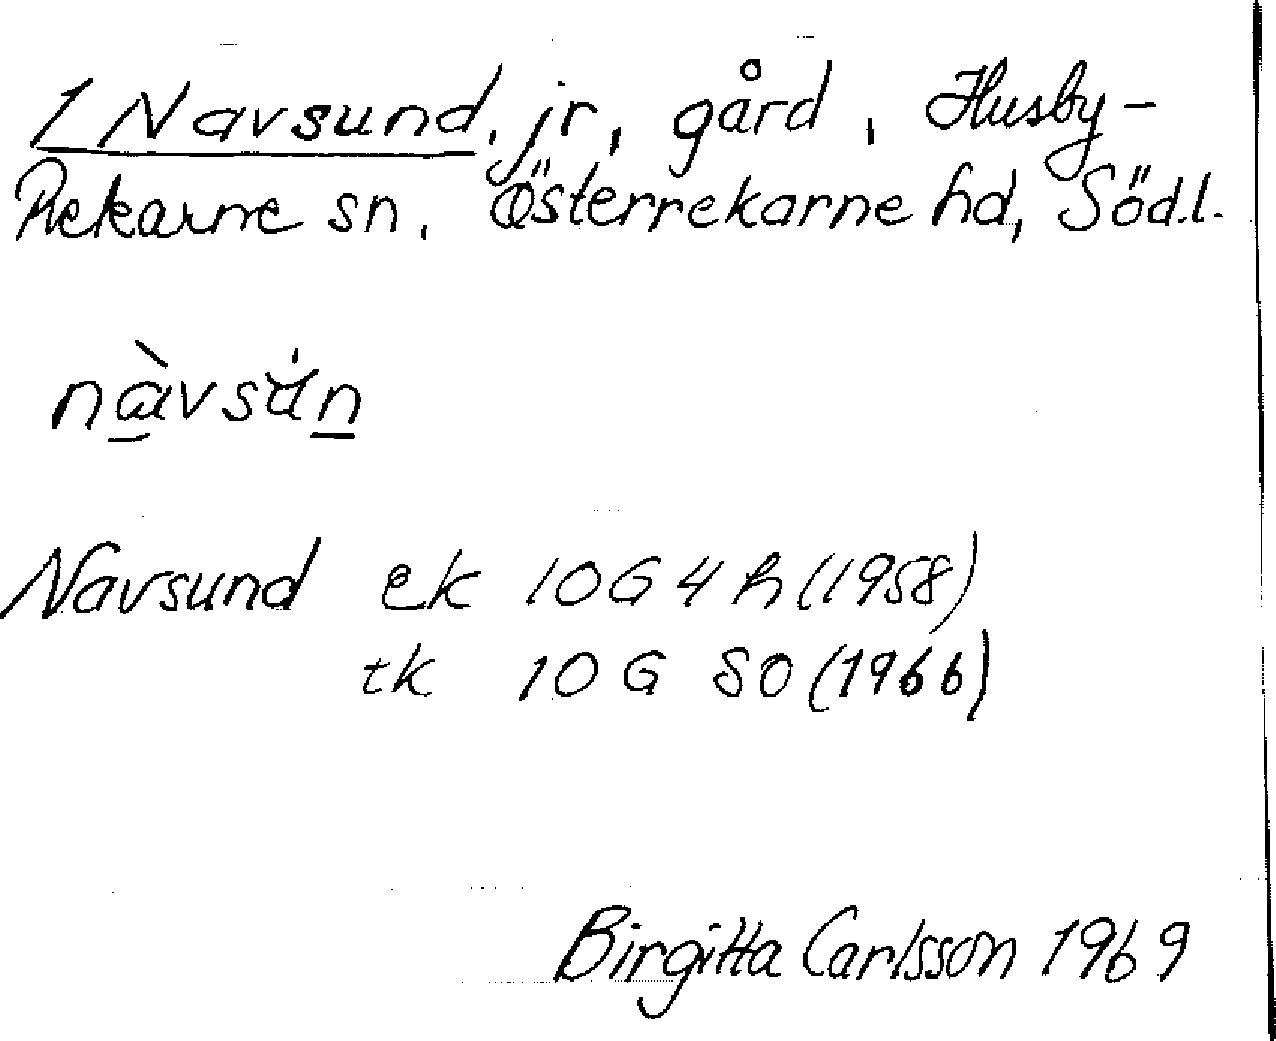 1 Navsund, jr, gård, Husby-
Rekarne sn, Österrekarne hd, Södl.
nàvsún
Navsund ek 10G4h (1958)
tk 10G SO (1966)
Birgitta Carlsson 1969